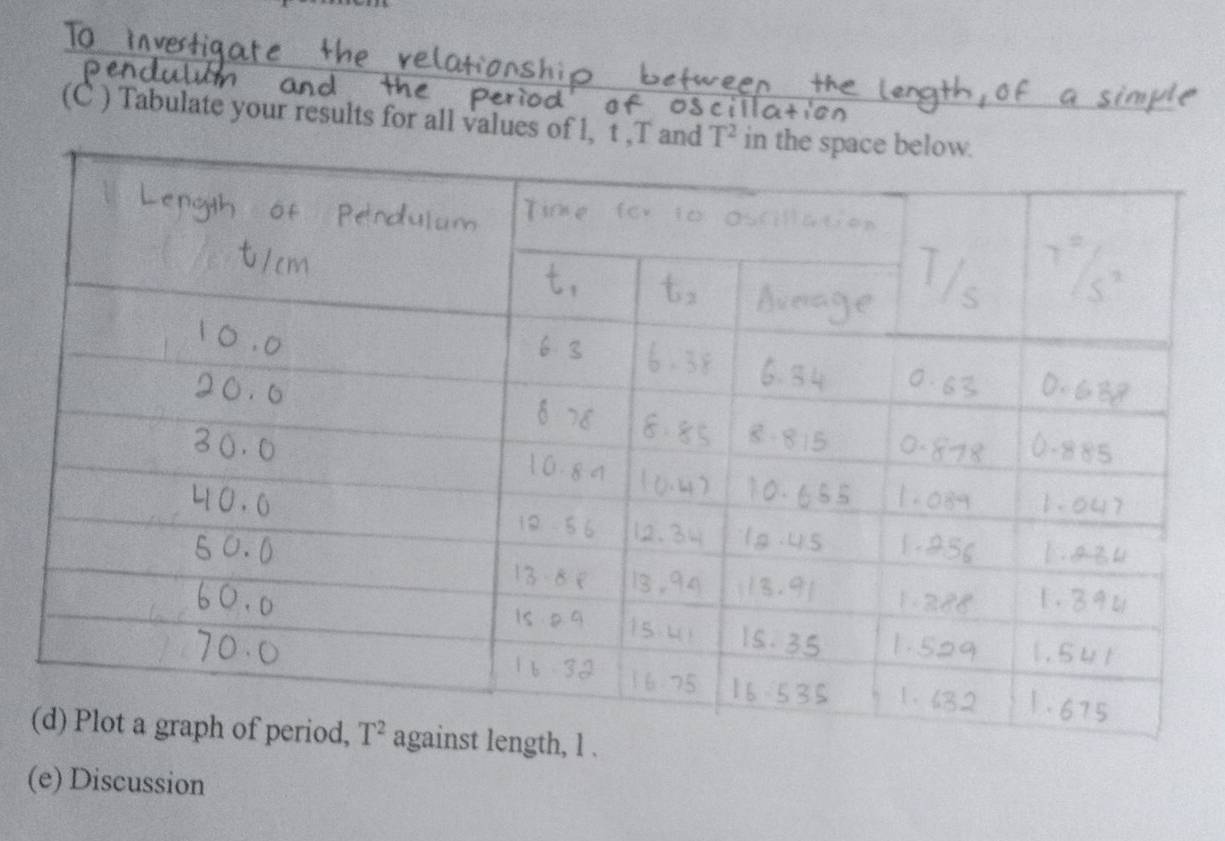 To investigate the relationship between the length, of a simple
pendulum and the period of oscillation
(C ) Tabulate your results for all values of l, t ,T and T² in the space below.
Length of Pendulum Time for 10 oscillation
t/cm t₁ t₂ Average T/s T²/s²
10.0 6.3 6.38 6.34 0.63 0.638
20.0 8.78 8.85 8.815 0.878 0.885
30.0 10.84 10.47 10.655 1.089 1.047
40.0 12.56 12.34 12.45 1.256 1.234
50.0 13.88 13.94 13.91 1.388 1.394
60.0 15.29 15.41 15.35 1.529 1.541
70.0 16.32 16.75 16.535 1.632 1.675
(d) Plot a graph of period, T² against length, l .
(e) Discussion